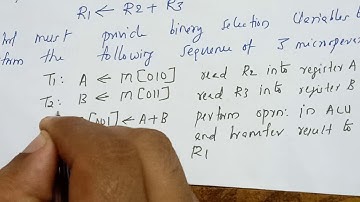 R1 ← R2 + R3
must provide binary selection variables
the following sequence of 3
T1: A ← M[010] read R2 into register A
T2: B ← M[011] read R3 into register B
[001] ← A+B perform oprn: in ALU
and transfer result to
R1